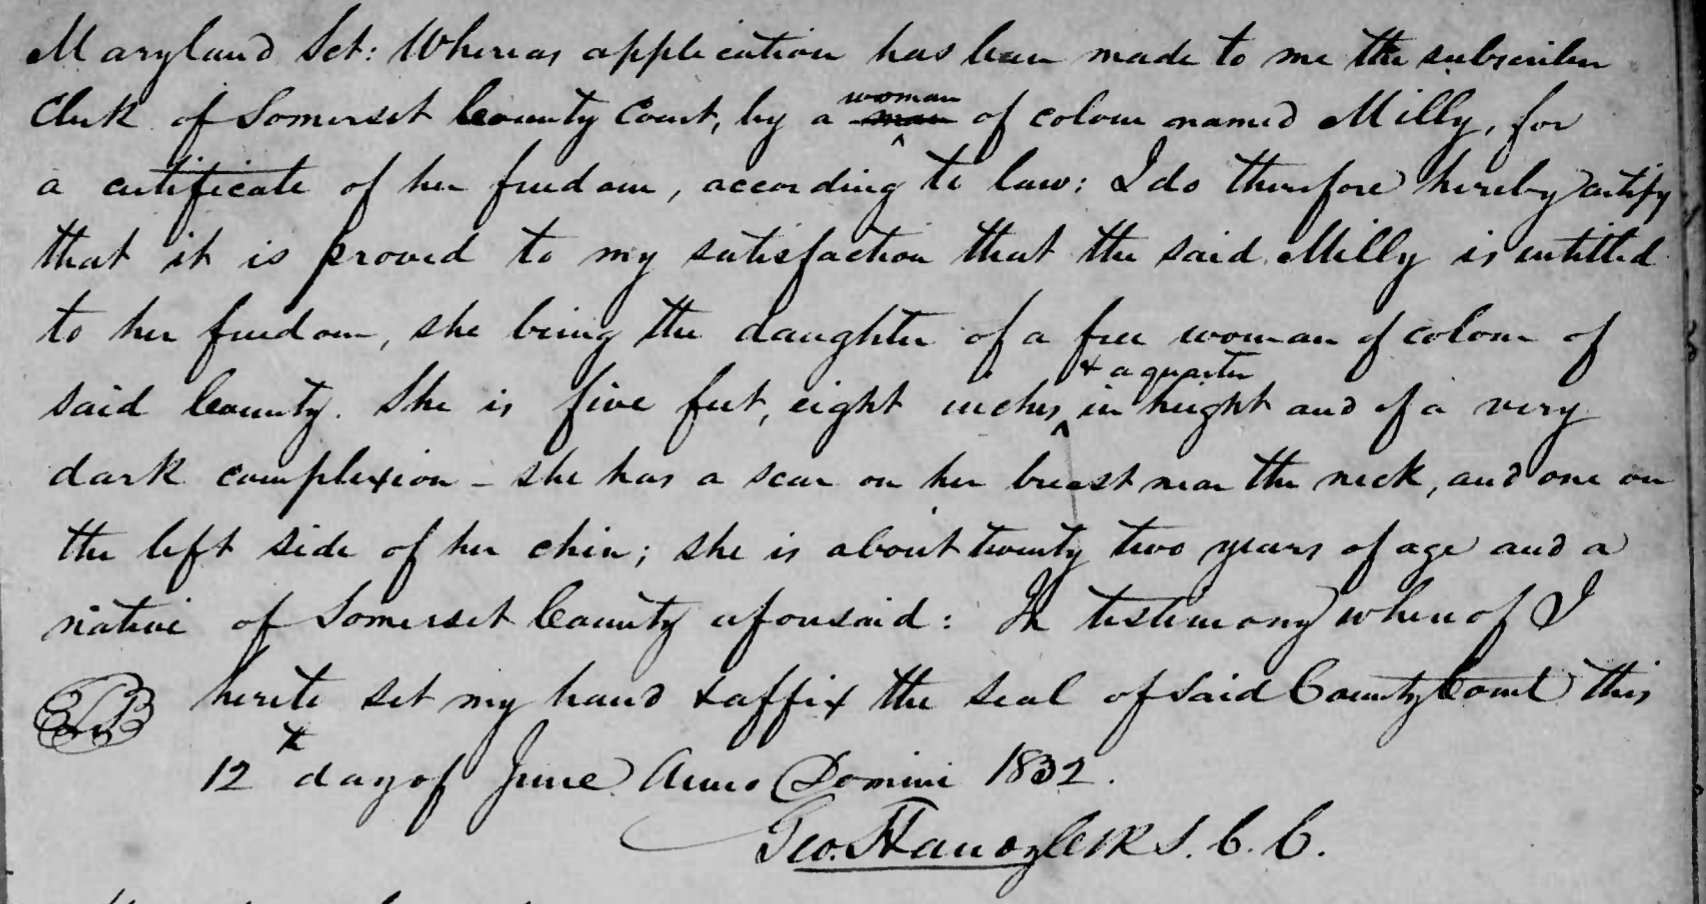 Maryland Sct: Whereas application has been made to me the subscriber
Clerk of Somerset County Court, by a man woman of colour named Milly, for
a certificate of her freedom, according to law: I do therefore hereby certify
that it is proved to my satisfaction that the said Milly is intitled
to her freedom, she being the daughter of a free woman of colour of
said County. She is five feet, eight inches, & a quarter in height and of a very
dark complexion – she has a scar on her breast near the neck, and one on
the left side of her chin; she is about twenty two years of age and a
native of Somerset County aforesaid: In testimony whereof I
hereto set my hand & affix the seal of said County Court this
12th day of June Anno Domini 1832.
Geo. Handy Clk S. C. C.